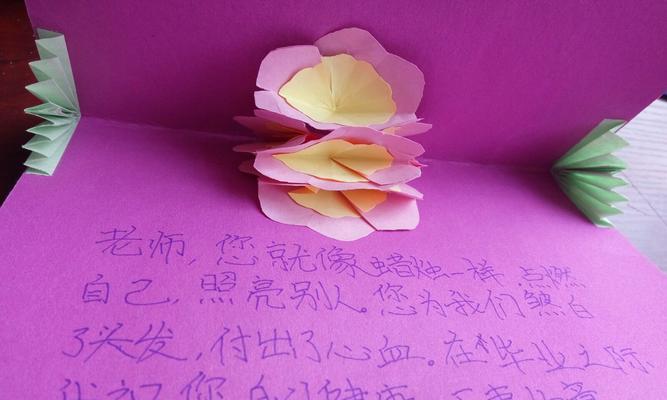 老师，您就像蜡烛一样 点燃
自己，照亮别人。您为我们熬白
了头发，付出了心血。在毕业之际
您的